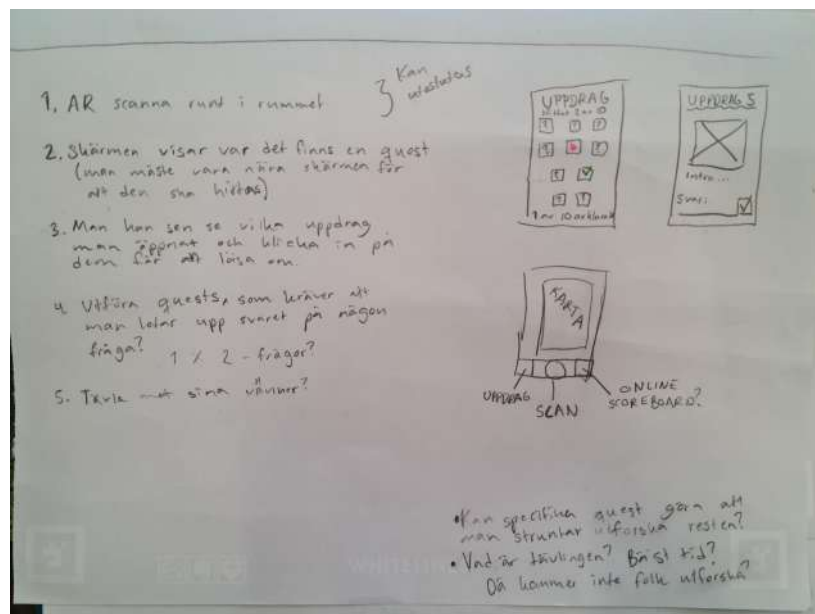 1. AR scanna runt i rummet
Kan
uteslutas
2. Skärmen visar var det finns en quest
(man måste vara nära skärmen för
att den ska hittas)
3. Man kan sen se vilka uppdrag
man öppnat och klicka in på
dem för att läsa om.
4 Utföra quests, som kräver att
man letar upp svaret på någon
fråga? 1 / 2 - frågor?
5. Tävla mot sina vänner?
UPPDRAG
av 10
UPPDRAG 5
Intro...
Svar:
KARTA
UPPDRAG
SCAN
ONLINE
SCOREBOARD?
• Kan specifika quest göra att
man struntar utforska resten?
• Vad är tävlingen? Bäst tid?
Då kommer inte folk utforska?